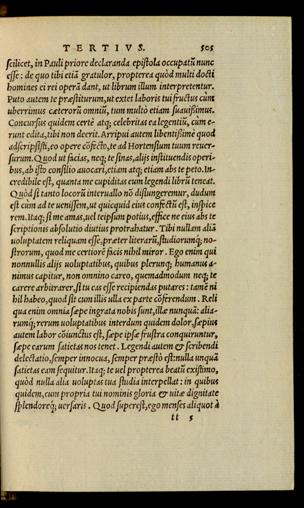 TERTIVS. 505
scilicet, in Pauli priore declaranda epistola occupatũ nunc
esse: de quo tibi etiã gratulor, propterea quòd multi docti
homines ei rei operã dant, ut librum illum interpretentur.
Puto autem te præstiturum, ut extet laboris tui fructus cum
uberrimus cæterorũ omniũ, tum multò etiam suauißimus.
Concursus quidem certè atq; celebritas ea legentiũ, cùm e-
runt edita, tibi non deerit. Arripui autem libentißimè quod
adscripsisti, eo opere cõfecto, te ad Hortensium tuum reuer-
surum. Quod ut facias, neq; te sinas, alijs instituendis operi-
bus, ab isto consilio auocari, etiam atq; etiam abs te peto. In-
credibile est, quanta me cupiditas eum legendi librũ teneat.
Quòd si tanto locorũ interuallo nõ disiungeremur, dudum
est cùm ad te uenissem, ut quicquid eius confectũ est, inspice
rem. Itaq; si me amas, uel teipsum potius, effice ne eius abs te
scriptionis absolutio diutius protrahatur. Tibi nullam aliã
uoluptatem reliquam esse, præter literarũ, studiorumq; no-
strorum, quod me certiorẽ facis nihil miror. Ego enim qui
nonnullis alijs uoluptatibus, quibus plerunq; humanus a-
nimus capitur, non omnino careo, quemadmodum neq; te
carere arbitrarer, si tu eas esse recipiendas putares: tamẽ ni
hil habeo, quod sit cum illis ulla ex parte cõferendum. Reli
qua enim omnia sæpe ingrata nobis sunt, illæ nunquã: alia-
rumq; rerum uoluptatibus interdum quidem dolor, sæpius
autem labor cõiunctus est, sæpe ipsæ frustra conquiruntur,
sæpe earum satietas nos tenet. Legendi autem & scribendi
delectatio, semper innocua, semper præsto est: nulla unquã
satietas eam sequitur. Itaq; te uel propterea beatũ existimo,
quòd nulla alia uoluptas tua studia interpellat: in quibus
quidem, cum propria tui nominis gloria & uitæ dignitate
splendoreq; uersaris. Quod superest, ego menses aliquot à
ll 5